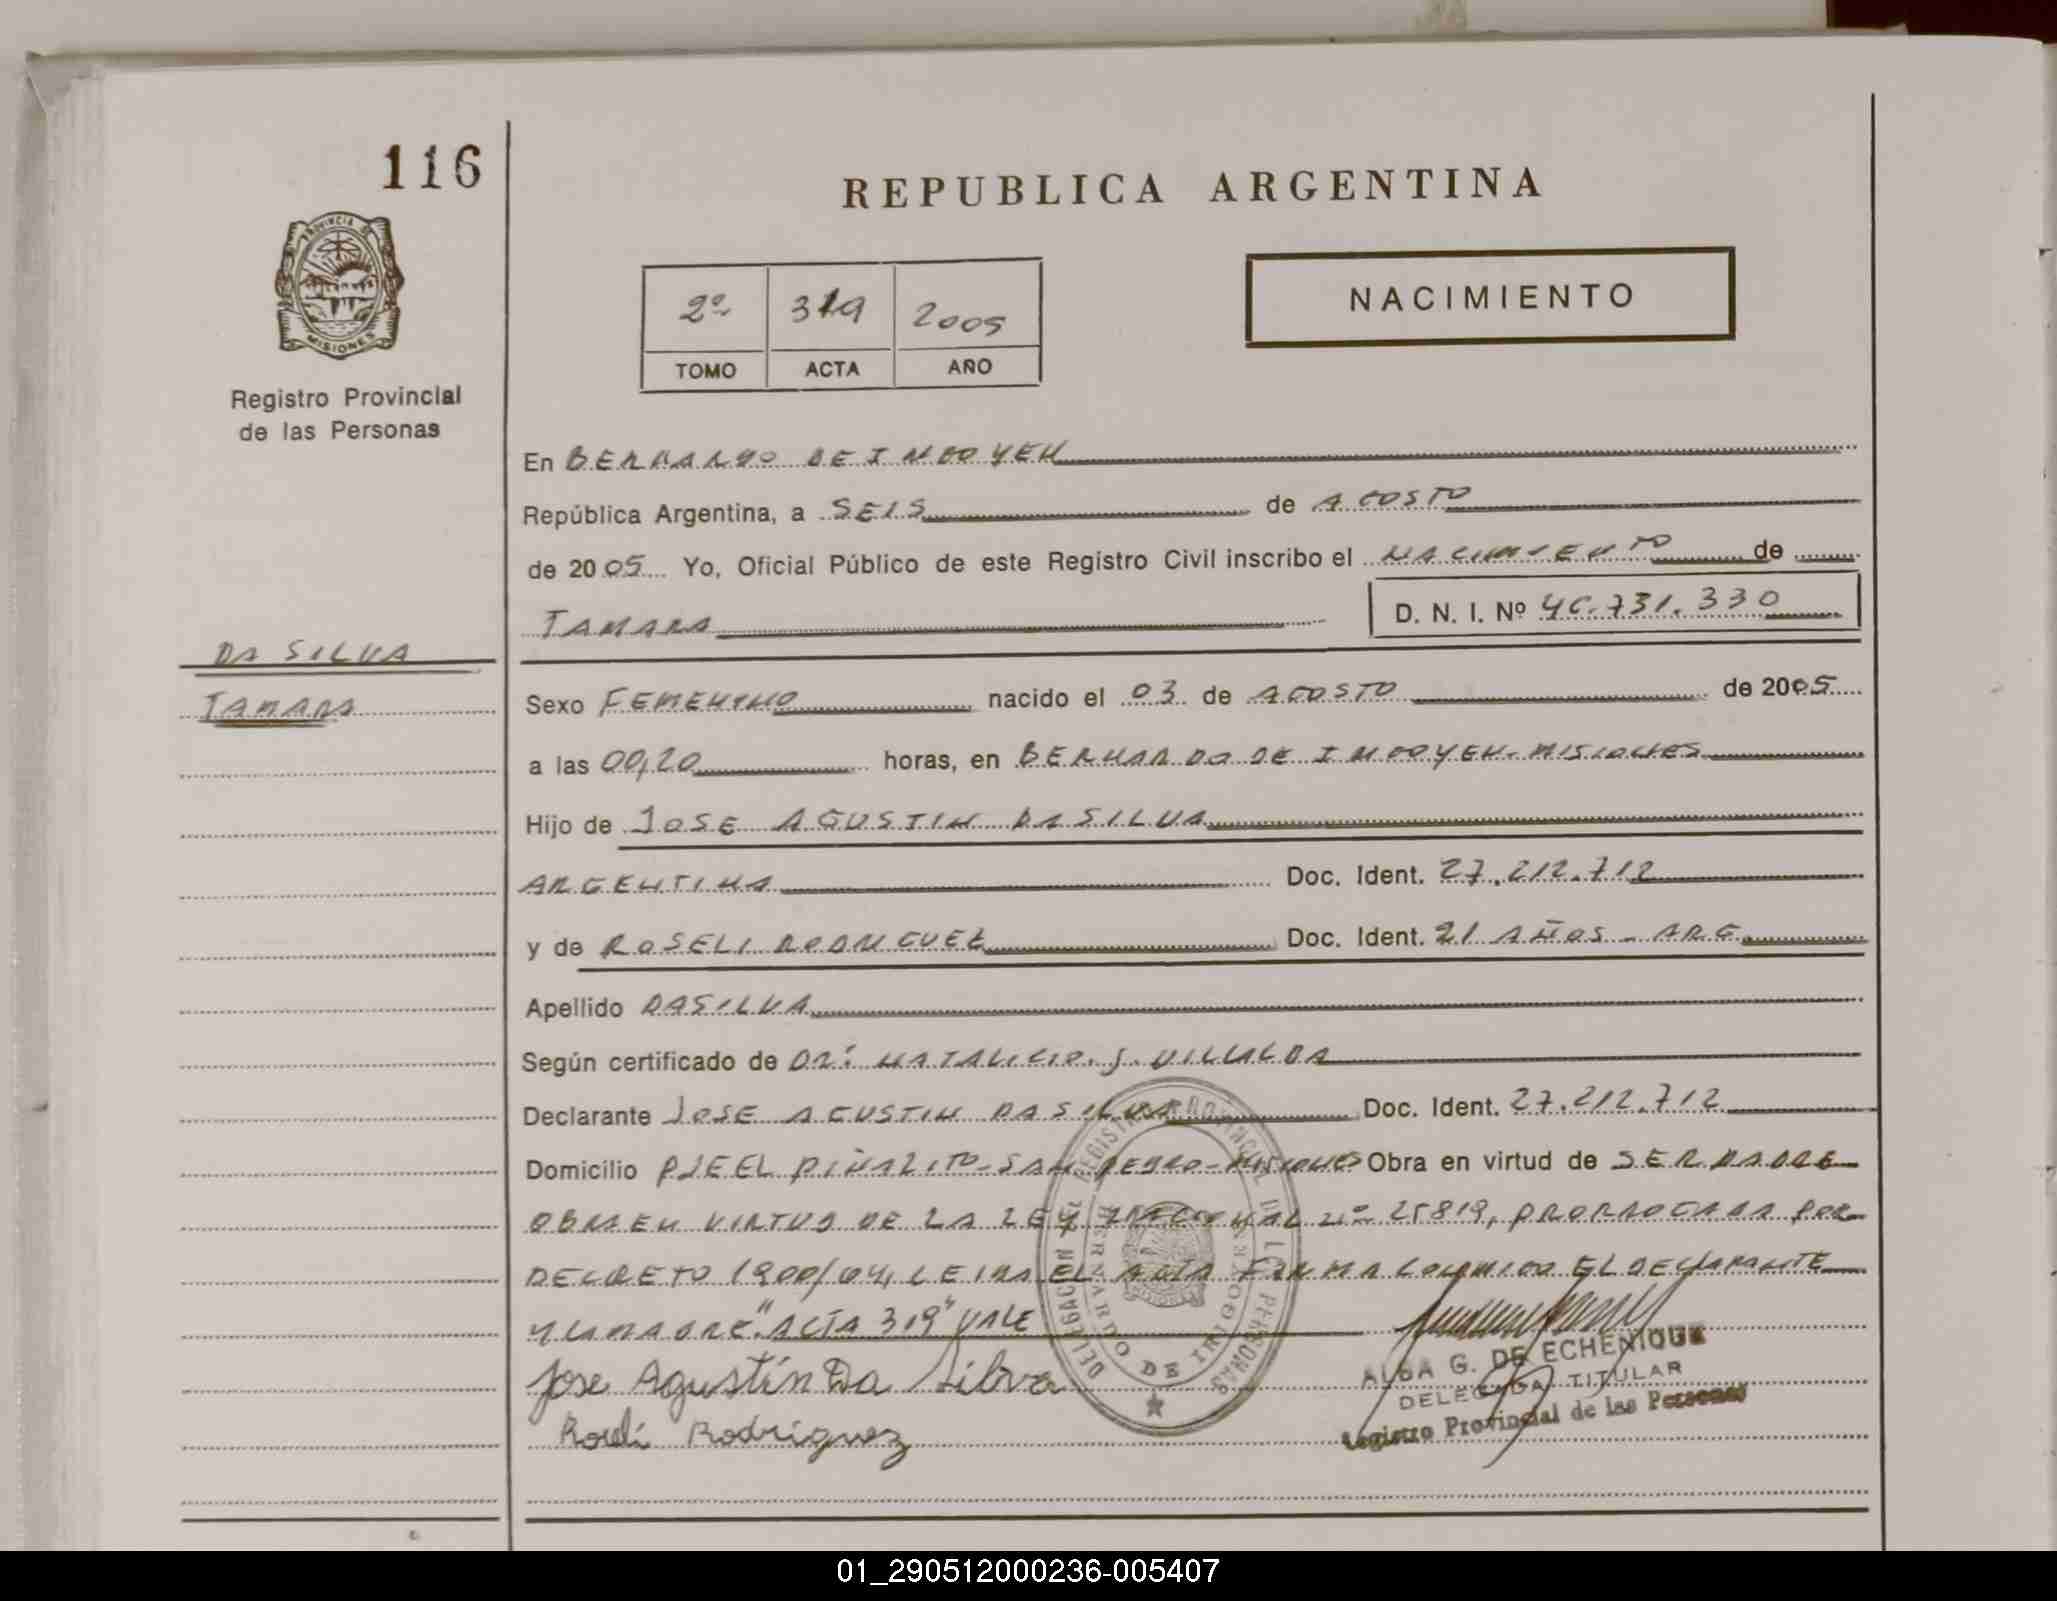 116
REPUBLICA ARGENTINA
PROVINCIA DE
MISIONES
Registro Provincial
de las Personas
2º 319 2005
TOMO ACTA AÑO
NACIMIENTO
En BERNARDO DE IRIGOYEN
República Argentina, a SEIS de AGOSTO
de 2005 Yo, Oficial Público de este Registro Civil inscribo el NACIMIENTO de
TAMARA D. N. I. Nº 46.731.330
DA SILVA
TAMARA
Sexo FEMENINO nacido el 03 de AGOSTO de 2005
a las 00,20 horas, en BERNARDO DE IRIGOYEN-MISIONES
Hijo de JOSE AGUSTIN DA SILVA
ARGENTINA Doc. Ident. 27.212.712
y de ROSELI RODRIGUEZ Doc. Ident. 21 AÑOS - ARG.
Apellido DA SILVA
Según certificado de DR: NATALICIO. J. VILLALBA
Declarante JOSE AGUSTIN DA SILVA Doc. Ident. 27.212.712
Domicilio PJE EL PIÑALITO-SAN PEDRO-MISIONES Obra en virtud de SER PADRE
OBRA EN VIRTUD DE LA LEY NACIONAL Nº 25819, PRORROGADA POR
DECRETO 1900/04, LEIDA EL ACTA FIRMA CONMIGO EL DECLARANTE
Y LA MADRE. "ACTA 319" VALE
Jose Agustín Da Silva
Roseli Rodriguez
DELEGACION DEL REGISTRO PROVINCIAL DE LAS PERSONAS
BERNARDO DE IRIGOYEN
ALBA G. DE ECHENIQUE
DELEGADA TITULAR
Registro Provincial de las Personas
01_290512000236-005407